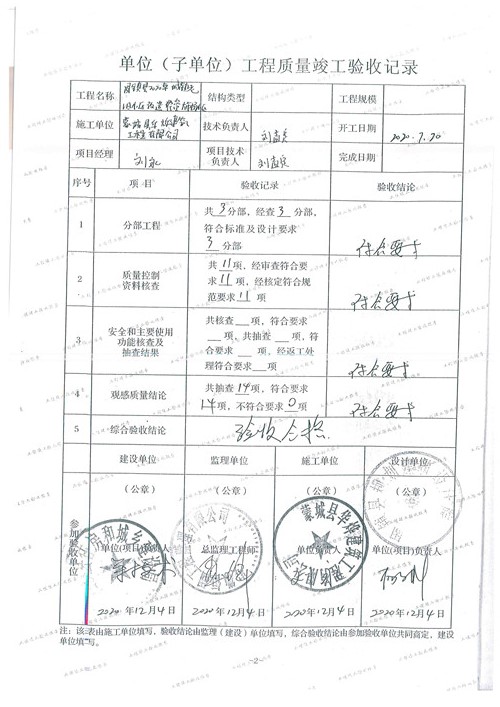 单位（子单位）工程质量竣工验收记录
工程名称 结构类型 工程规模
施工单位 工程有限公司 技术负责人 开工日期 2020.7.20
项目经理 刘 项目技术负责人 完成日期
序号 项 目 验收记录 验收结论
1 分部工程 共3分部，经查3分部，
符合标准及设计要求
3分部 符合要求
2 质量控制资料核查 共11项，经审查符合要
求11项，经核定符合规
范要求11项 符合要求
3 安全和主要使用功能核查及抽查结果 共核查 项，符合要求
项、共抽查 项，符
合要求 项，经返工处
理符合要求 项 符合要求
4 观感质量结论 共抽查14项，符合要求
14项，不符合要求0项 符合要求
5 综合验收结论 验收合格
参加验收单位
建设单位 监理单位 施工单位 设计单位
（公章） （公章） （公章） （公章）
单位(项目)负责人 总监理工程师 单位负责人 单位(项目)负责人
蒙城县华 建筑工程有限公司
2020年12月4日 2020年12月4日 2020年12月4日 2020年12月4日
注：该表由施工单位填写，验收结论由监理（建设）单位填写，综合验收结论由参加验收单位共同商定，建设
单位填写。
-2-